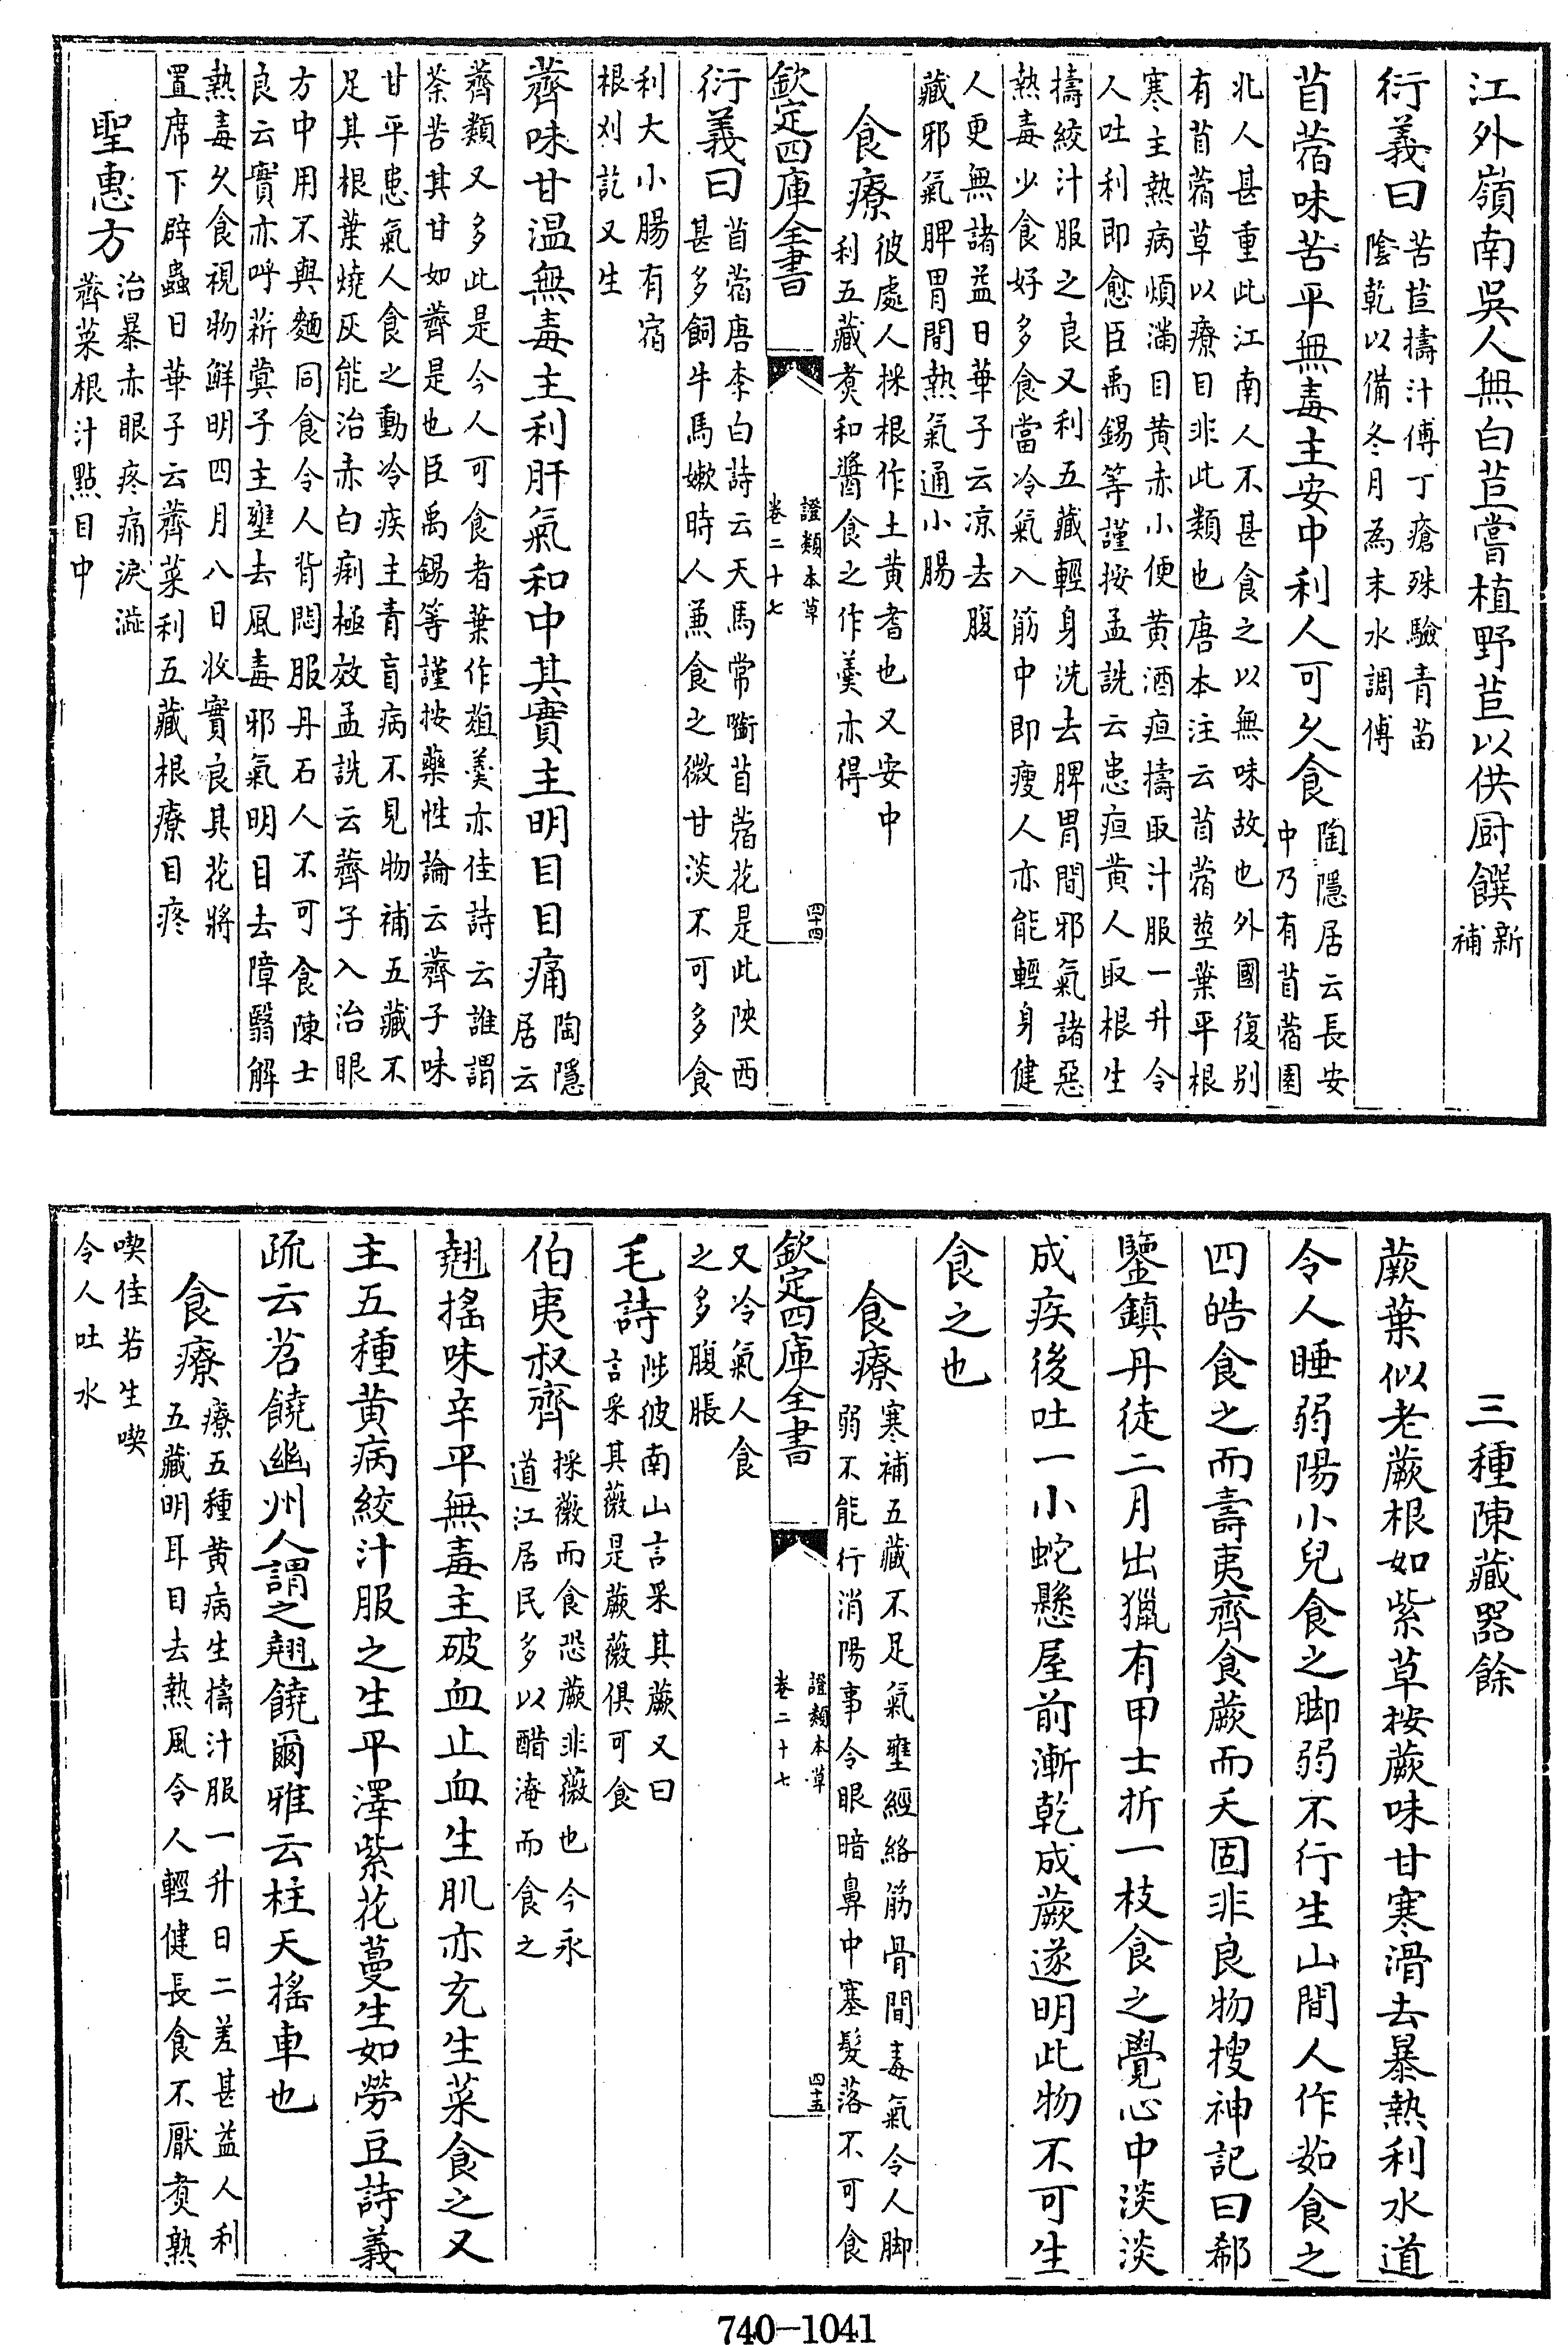 江外嶺南吳人無白苣嘗植野苣以供厨饌新
補
衍義曰苦苣擣汁傅丁瘡殊驗青苗
陰乾以備冬月為末水調傅
苜蓿味苦平無毒主安中利人可久食陶隱居云長安
中乃有苜蓿園
北人甚重此江南人不甚食之以無味故也外國復別
有苜蓿草以療目非此類也唐本注云苜蓿莖葉平根
寒主熱病煩滿目黄赤小便黄酒疸擣取汁服一升令
人吐利即愈臣禹錫等謹按孟詵云患疸黄人取根生
擣絞汁服之良又利五藏輕身洗去脾胃間邪氣諸惡
熱毒少食好多食當冷氣入筋中即瘦人亦能輕身健
人更無諸益日華子云凉去腹
藏邪氣脾胃間熱氣通小腸
食療彼處人採根作土黄耆也又安中
利五藏煑和醬食之作羹亦得
欽定四庫全書
證類本草
卷二十七
四十四
衍義曰苜蓿唐李白詩云天馬常銜苜蓿花是此陜西
甚多飼牛馬嫩時人兼食之微甘淡不可多食
利大小腸有宿
根刈訖又生
薺味甘温無毒主利肝氣和中其實主明目目痛陶隱
居云
薺類又多此是今人可食者葉作葅羹亦佳詩云誰謂
荼苦其甘如薺是也臣禹錫等謹按藥性論云薺子味
甘平患氣人食之動冷疾主青盲病不見物補五藏不
足其根葉燒灰能治赤白痢極效孟詵云薺子入治眼
方中用不與麵同食令人背悶服丹石人不可食陳士
良云實亦呼菥蓂子主壅去風毒邪氣明目去障翳解
熱毒久食視物鮮明四月八日收實良具花將
置席下辟蟲日華子云薺菜利五藏根療目疼
聖惠方治暴赤眼疼痛淚澁
薺菜根汁點目中
三種陳藏器餘
蕨葉似老蕨根如紫草按蕨味甘寒滑去暴熱利水道
令人睡弱陽小兒食之脚弱不行生山間人作茹食之
四皓食之而壽夷齊食蕨而夭固非良物搜神記曰郗
鑒鎮丹徒二月出獵有甲士折一枝食之覺心中淡淡
成疾後吐一小蛇懸屋前漸乾成蕨遂明此物不可生
食之也
食療寒補五藏不足氣壅經絡筋骨間毒氣令人脚
弱不能行消陽事令眼暗鼻中塞髮落不可食
欽定四庫全書
證類本草
卷二十七
四十五
又冷氣人食
之多腹脹
毛詩陟彼南山言采其蕨又曰
言采其薇是蕨薇俱可食
伯夷叔齊採薇而食恐蕨非薇也今永
道江居民多以醋淹而食之
翹搖味辛平無毒主破血止血生肌亦充生菜食之又
主五種黄病絞汁服之生平澤紫花蔓生如勞豆詩義
疏云苕饒幽州人謂之翹饒爾雅云柱夭搖車也
食療療五種黄病生擣汁服一升日二差甚益人利
五藏明耳目去熱風令人輕健長食不厭煑熟
喫佳若生喫
令人吐水
740-1041